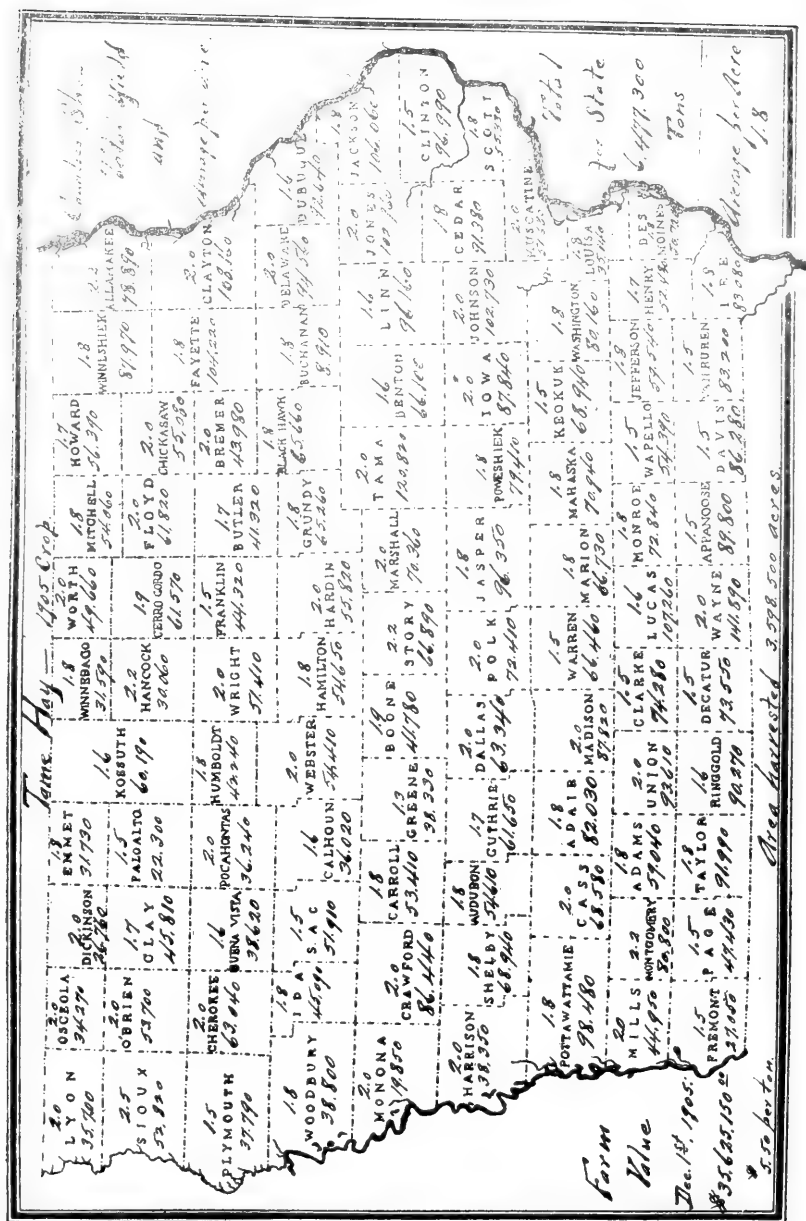 Tame Hay — 1905 Crop
2.0
LYON
35.700
2.0
OSCEOLA
34.270
2.0
DICKINSON
1.8
EMMET
31.730
1.6
KOSSUTH
60.190
1.8
WINNEBAGO
31.590
2.0
WORTH
49.660
1.8
MITCHELL
54.060
1.7
HOWARD
56.390
1.8
WINNESHIEK
87.970
2.2
ALLAMAKEE
78.890
2.5
SIOUX
52.820
2.0
O'BRIEN
53.700
1.7
CLAY
45.810
1.5
PALO ALTO
22.300
2.2
HANCOCK
30.060
1.9
CERRO GORDO
61.570
2.0
FLOYD
61.820
2.0
CHICKASAW
55.080
1.8
FAYETTE
104.220
2.0
CLAYTON
108.160
1.5
PLYMOUTH
37.790
2.0
CHEROKEE
63.040
1.6
BUENA VISTA
38.620
2.0
POCAHONTAS
36.240
1.8
HUMBOLDT
42.240
2.0
WRIGHT
57.410
1.5
FRANKLIN
44.320
1.7
BUTLER
41.320
2.0
BREMER
43.980
1.8
WOODBURY
38.800
1.8
IDA
45.090
1.5
SAC
51.910
1.6
CALHOUN
36.020
2.0
WEBSTER
54.410
1.8
HAMILTON
54.650
2.0
HARDIN
55.820
1.8
GRUNDY
65.260
1.8
BLACK HAWK
65.660
1.8
BUCHANAN
2.0
DELAWARE
1.6
DUBUQUE
92.640
2.0
MONONA
2.0
CRAWFORD
86.440
1.8
CARROLL
53.410
1.3
GREENE
38.330
1.9
BOONE
41.780
2.2
STORY
66.890
2.0
MARSHALL
70.360
2.0
TAMA
120.820
1.6
BENTON
1.6
LINN
96.160
2.0
JONES
1.8
JACKSON
106.060
1.5
CLINTON
96.990
2.0
HARRISON
38.350
1.8
SHELBY
68.940
1.8
AUDUBON
54.610
1.7
GUTHRIE
61.650
2.0
DALLAS
63.340
2.0
POLK
72.410
1.8
JASPER
96.350
1.8
POWESHIEK
79.410
2.0
IOWA
87.840
2.0
JOHNSON
102.730
1.8
CEDAR
91.380
1.8
SCOTT
1.8
POTTAWATTAMIE
98.480
2.0
CASS
68.580
1.8
ADAIR
82.030
2.0
MADISON
87.820
1.5
WARREN
66.460
1.8
MARION
66.730
1.8
MAHASKA
70.940
1.5
KEOKUK
68.940
1.8
WASHINGTON
80.160
2.0
MUSCATINE
1.8
LOUISA
2.0
MILLS
44.950
2.2
MONTGOMERY
80.800
1.8
ADAMS
59.040
2.0
UNION
93.610
1.5
CLARKE
74.280
1.6
LUCAS
107.260
1.8
MONROE
72.840
1.5
WAPELLO
54.390
1.8
JEFFERSON
59.540
1.7
HENRY
DES MOINES
1.5
FREMONT
1.5
PAGE
47.430
1.8
TAYLOR
91.990
1.6
RINGGOLD
90.270
1.5
DECATUR
73.550
2.0
WAYNE
141.890
1.5
APPANOOSE
89.800
1.5
DAVIS
86.280
1.5
VAN BUREN
83.200
1.8
LEE
83.080
and
Average per acre
Total
for State
6,477.300
Tons
Average per Acre
1.8
Farm
Value
Dec. 1st, 1905.
$35,625,150.00
$
5.50 per ton.
Area harvested 3,598.500 acres